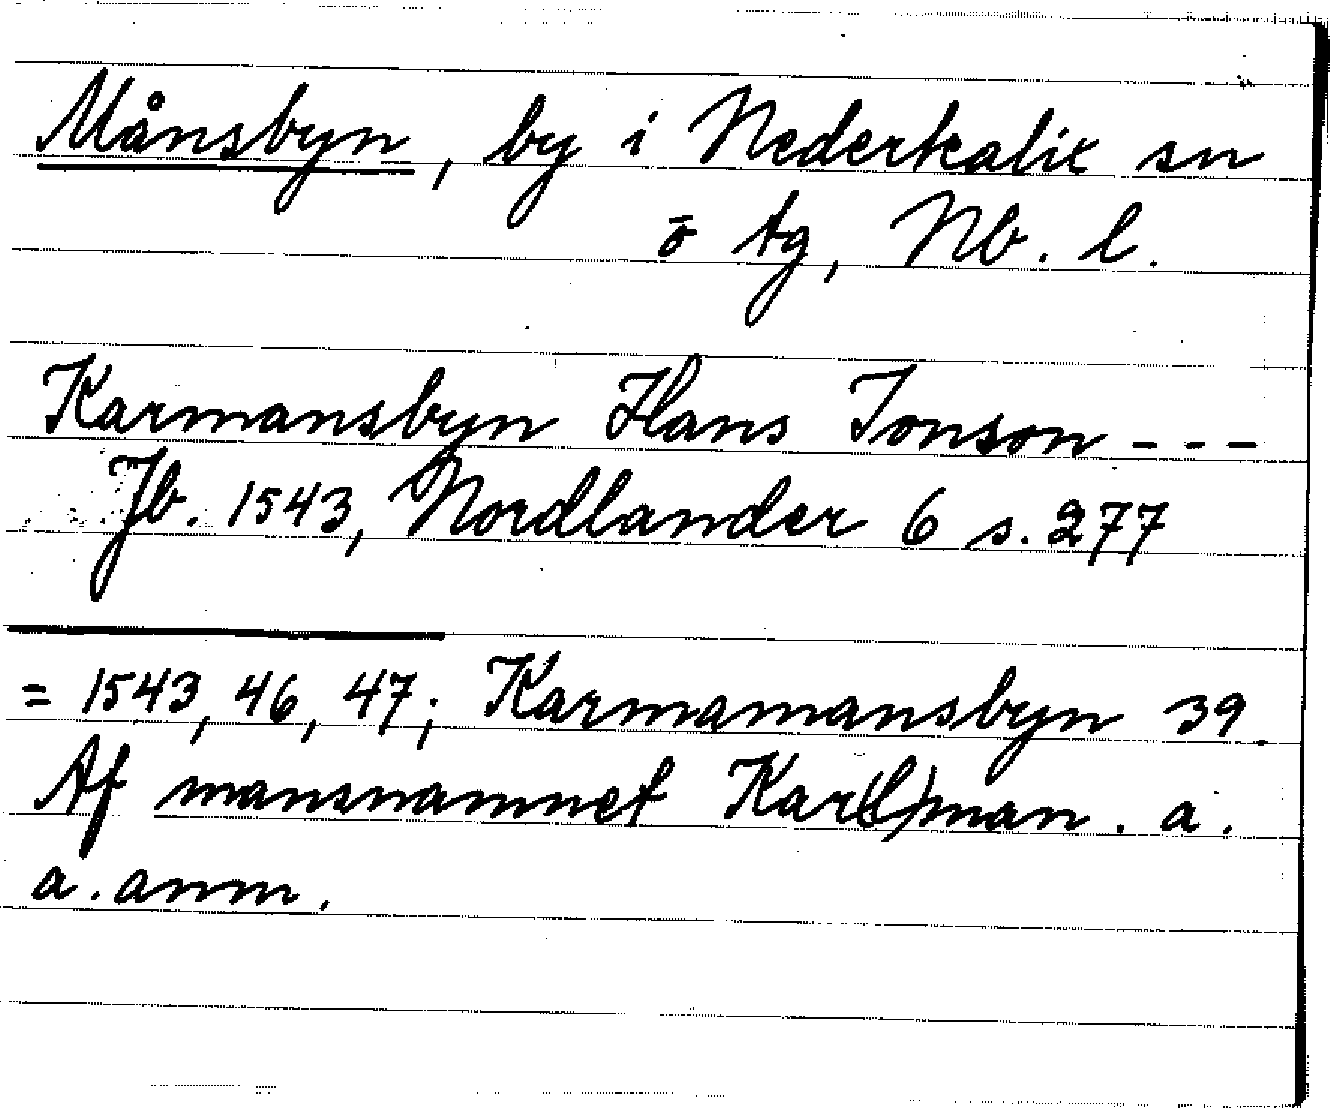 Månsbyn, by i Nederkalix sn
ö tg, Nb. l.
Karmansbyn Hans Jonson - - -
Jb. 1543, Nordlander 6 s. 277
= 1543, 46, 47; Karmamansbyn 39.
Af mansnamnet Kar(l)man. a.
a. anm.